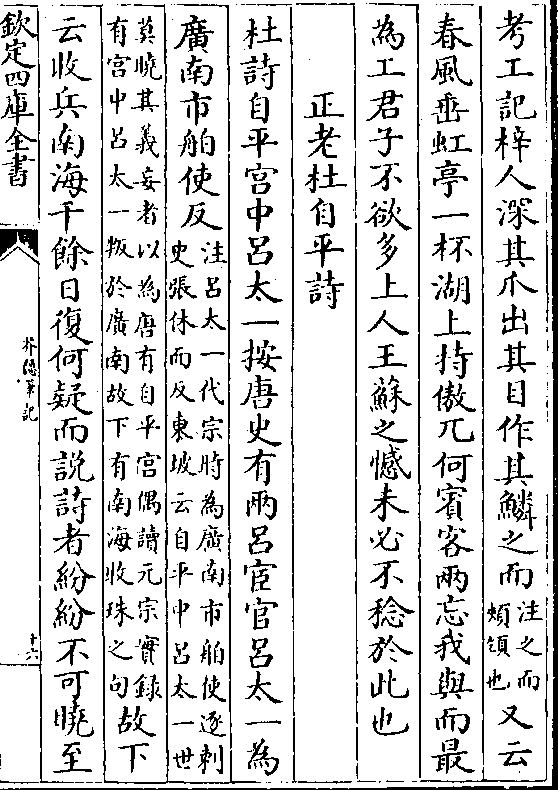 考工記梓人深其爪出其目作其鱗之而注之而頰頷也又云
春風垂虹亭一杯湖上持傲兀何賓客兩忘我與而最
為工君子不欲多上人王蘇之憾未必不稔於此也
正老杜自平詩
杜詩自平宮中呂太一按唐史有兩呂宦官呂太一為
廣南市舶使反注呂太一代宗時為廣南市舶使逐刺
史張休而反東坡云自平中呂太一世
莫曉其義妄者以為唐有自平宮偶讀元宗實錄
有宮中呂太一叛於廣南故下有南海收珠之句故下
云收兵南海千餘日復何疑而説詩者紛紛不可曉至
欽定四庫全書
芥隱筆記
十六